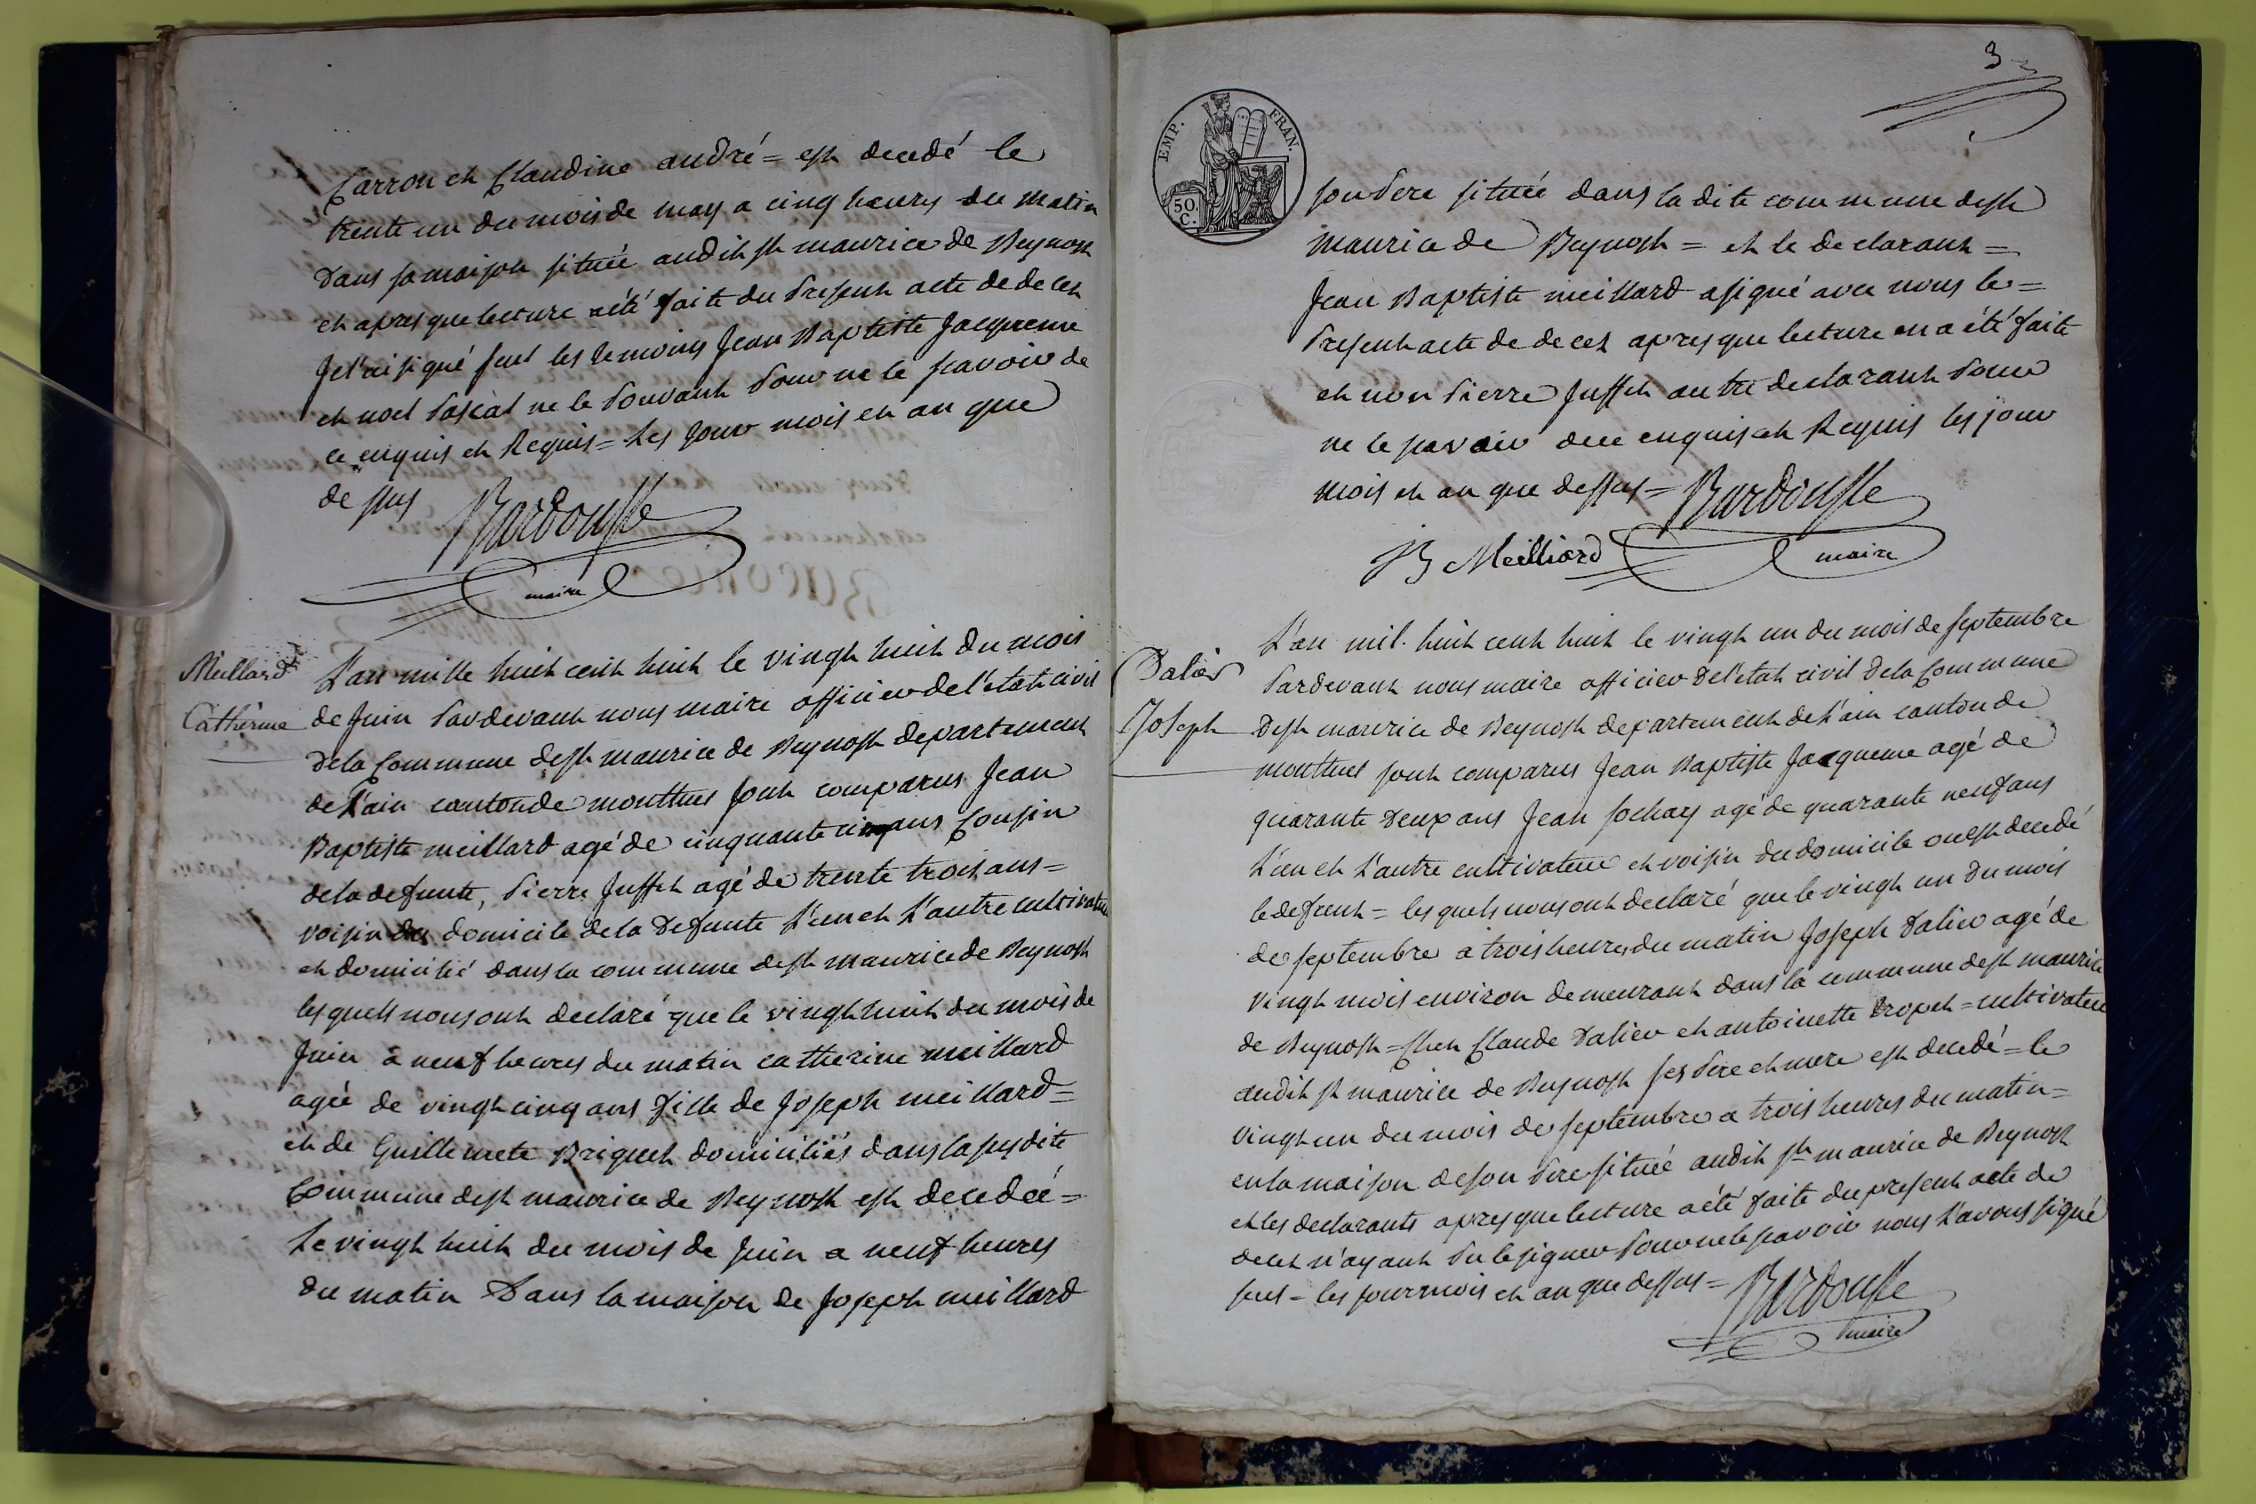 Carron et Claudine andré = est decedé le
trente un du mois de may a cinq heures du matin
dans sa maison située audit st maurice de Beynost
et apres que lecture a été faite du present acte de deces
Je l'ai signé seul les temoins Jean Baptiste Jacqueme
et noel Pascal ne le Pouvant Pour ne le scavoir de
ce enquis et Requis = Les Jour mois et an que
dessus Bardousse
maire
Meillard
Catherine
L'an mille huit cent huit le vingt huit du mois
de Juin Pardevant nous maire officier de l'etat civil
de la Commune de st maurice de Beynost departement
de L'ain canton de montluel sont comparus Jean
Baptiste meillard agé de cinquante cinq ans Cousin
de la defunte, Pierre Juffet agé de trente trois ans =
voisin du domicile de la defunte L'un et L'autre cultivateur
et domicilié dans la commune de st maurice de Beynost
les quels nous ont declaré que le vingt huit du mois de
Juin a neuf heures du matin catherine meillard
agée de vingt cinq ans fille de Joseph meillard =
et de Guillemete Briquet domiciliés dans la susdite
Commune de st maurice de Beynost est decedée =
Le vingt huit du mois de Juin a neuf heures
du matin Dans la maison de Joseph meillard
3
EMP. FRAN.
50 C.
son Pere située dans la dite commune de st
maurice de Beynost = et le declarant =
Jean Baptiste meillard a signé avec nous le =
Present acte de deces apres que lecture en a été faite
et non Pierre Juffet autre declarant Pour
ne le savoir de ce enquis et Requis les jour
mois et an que dessus = Bardousse
JB Meilliard
maire
Dalier
Joseph
L'an mil huit cent huit le vingt un du mois de septembre
Pardevant nous maire officier de l'etat civil de la Commune
de st maurice de Beynost departement de L'ain canton de
montluel sont comparus Jean Baptiste Jacqueme agé de
quarante deux ans Jean sochay agé de quarante neuf ans
L'un et L'autre cultivateur et voisin du domicile ou est decedé
le defunt = les quels nous ont declaré que le vingt un du mois
de septembre a trois heures du matin Joseph Dalier agé de
vingt mois environ demeurant dans la commune de st maurice
de Beynost = Chez Claude Dalier et antoinette Propet = cultivateur
audit st maurice de Beynost ses Pere et mere est decedé = le
vingt un du mois de septembre a trois heures du matin =
en la maison de son Pere située audit st maurice de Beynost
et les declarants apres que lecture a été faite du present acte de
deces n'ayant Pu le signer Pour ne le scavoir nous L'avons signé
seul = les Jour mois et an que dessus = Bardousse
maire